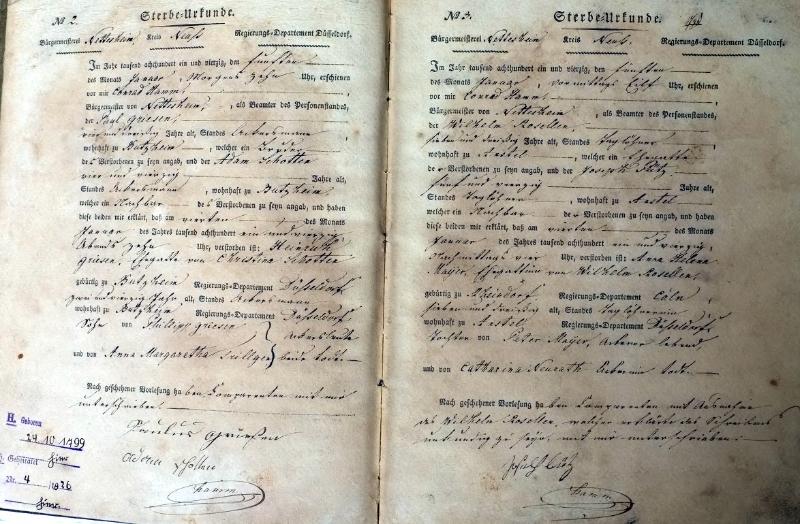 No 2. Sterbe-Urkunde.
Bürgermeisterei Nettesheim, Kreis Neuß Regierungs-Departement Düsseldorf.
Im Jahr tausend achthundert ein und vierzig, den fünften
des Monats Januar, Morgens zehn Uhr, erschienen
vor mir Conrad Hamm,
Bürgermeister von Nettesheim, als Beamter des Personenstandes,
der Paul Griesen,
vier und dreißig Jahre alt, Standes Ackersmann
wohnhaft zu Butzheim, welcher ein Bruder
des Verstorbenen zu seyn angab, und der Adam Schotten
vier und vierzig Jahre alt,
Standes Ackersmann, wohnhaft zu Butzheim,
welcher ein Nachbar des Verstorbenen zu seyn angab, und haben
diese beiden mir erklärt, daß am vierten des Monats
Januar des Jahres tausend achthundert ein und vierzig
Abends zehn Uhr, verstorben ist: Heinrich
Griesen, Ehegatte von Christina Schotten
gebürtig zu Butzheim Regierungs-Departement Düsseldorf
zwei und vierzig Jahr alt, Standes Ackersmann
wohnhaft zu Butzheim Regierungs-Departement Düsseldorf
Sohn von Philipp Griesen Ackersleute
und von Anna Margaretha Füllgen beide todt.
Nach geschehener Vorlesung haben Komparenten mit mir
unterschrieben.
Paulus Grießen
Adam Schotten
Hamm
H. Geboren
24.10.1799
Geheiratet hier
Nr. 4 1836
hier
No 3. Sterbe-Urkunde.
Bürgermeisterei Nettesheim Kreis Neuß. Regierungs-Departement Düsseldorf.
Im Jahr tausend achthundert ein und vierzig, den fünften
des Monats Januar, vormittags Eilf Uhr, erschienen
vor mir Conrad Hamm,
Bürgermeister von Nettesheim, als Beamter des Personenstandes,
der Wilhelm Rosellen,
sieben und dreißig Jahre alt, Standes Taglöhner
wohnhaft zu Anstel, welcher ein Ehegatte
der Verstorbenen zu seyn angab, und der Joseph Pütz
fünf und vierzig Jahre alt,
Standes Taglöhner, wohnhaft zu Anstel
welcher ein Nachbar der Verstorbenen zu seyn angab, und haben
diese beiden mir erklärt, daß am vierten des Monats
Januar des Jahres tausend achthundert ein und vierzig
Nachmittags vier Uhr, verstorben ist: Anna Helena
Mayer, Ehegattinn von Wilhelm Rosellen,
gebürtig zu Rheindorf Regierungs-Departement Cöln,
sieben und dreißig Jahre alt, Standes Taglöhnerin
wohnhaft zu Anstel Regierungs-Departement Düsseldorf
Tochter von Peter Mayer, Ackerer lebend
und von Catharina Neurath Ackerin todt.
Nach geschehener Vorlesung haben Komparenten mit Ausnahme
des Wilhelm Rosellen, welcher erklärte des Schreibens
unkundig zu seyn, mit mir unterschrieben.
Joseph Pütz
Hamm